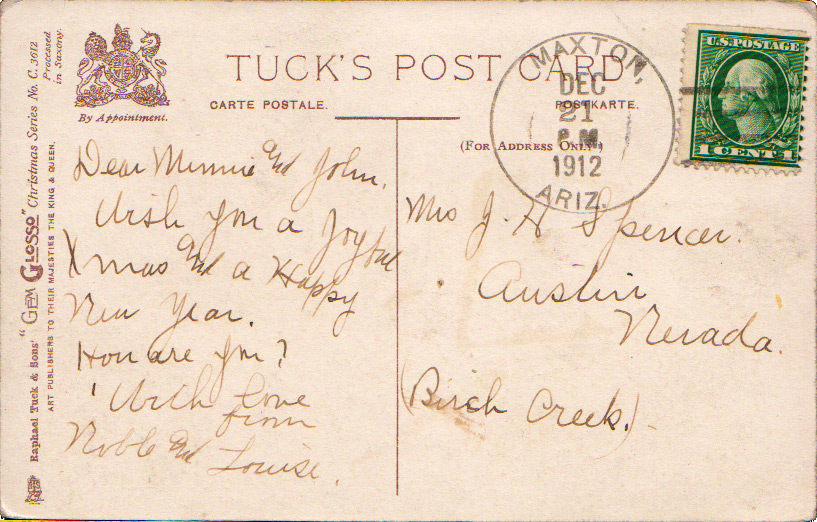 Raphael Tuck & Sons' "GEM GLOSSO" Christmas Series No. C. 3612
ART PUBLISHERS TO THEIR MAJESTIES THE KING & QUEEN.
Processed
in Saxony.
By Appointment.
TUCK'S POST CARD
CARTE POSTALE.
POSTKARTE.
(FOR ADDRESS ONLY.)
MAXTON,
DEC
21
P.M.
1912
ARIZ.
U.S. POSTAGE
1 CENT 1
Dear Minnie and John.
Wish you a Joyful
Xmas and a Happy
New Year.
How are you?
With love
from
Noble and Louise.
Mrs J. H Spencer.
Austin
Nevada.
(Birch Creek.)